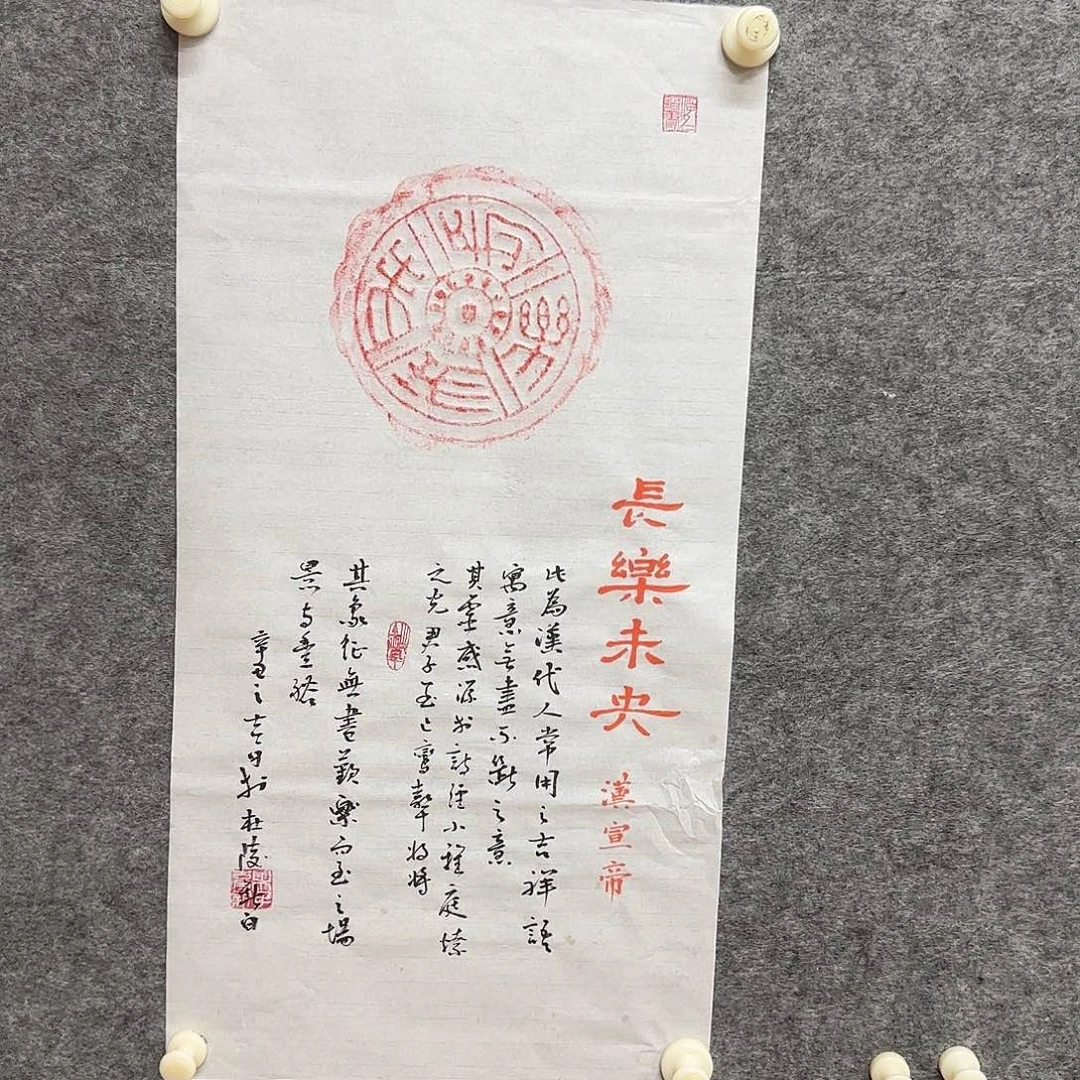 長樂未央 漢宣帝
此為漢代人常用之吉祥語
寓意無盡不繼之意
其靈感源於詩經小雅庭燎
之光君子至止鸞聲將將
其象征無書歡樂而至之場
景与豐裕
辛丑之吉日於杜陵 白